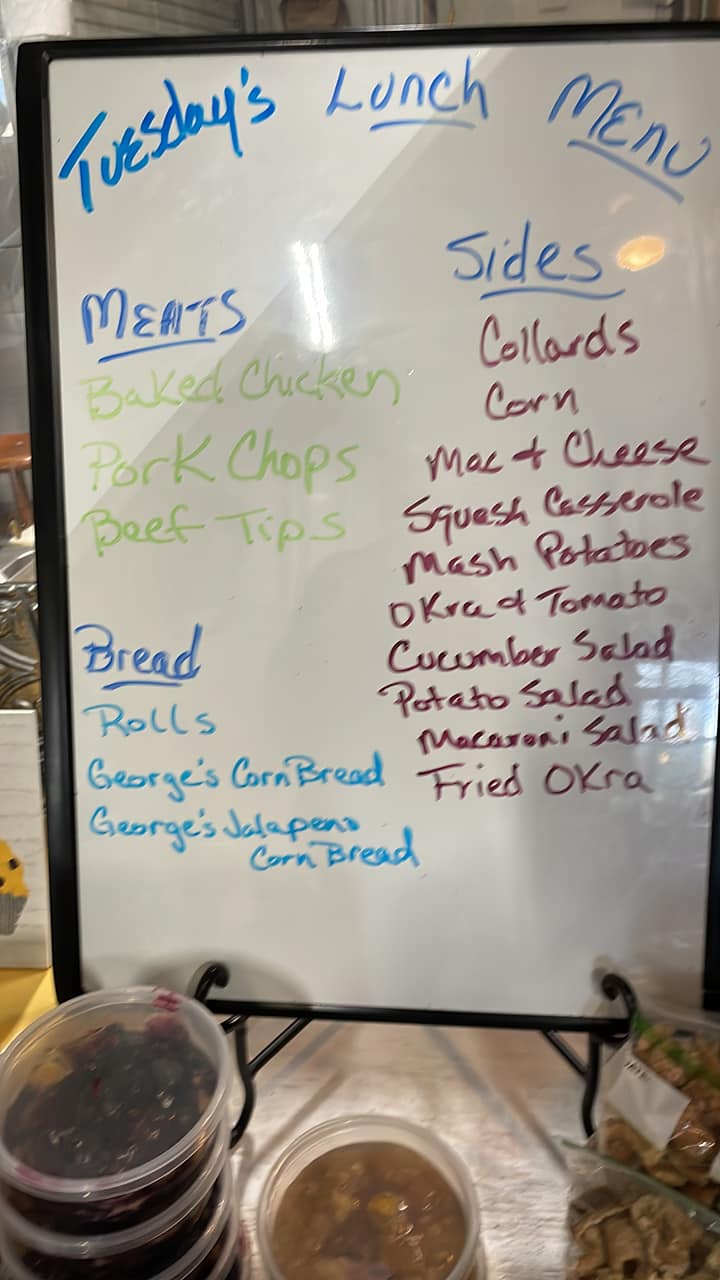 Tuesday's Lunch Menu
Meats
Baked Chicken
Pork Chops
Beef Tips
Bread
Rolls
George's Corn Bread
George's Jalapeno
Corn Bread
Sides
Collards
Corn
Mac & Cheese
Squash Casserole
Mash Potatoes
Okra & Tomato
Cucumber Salad
Potato Salad
Macaroni Salad
Fried Okra